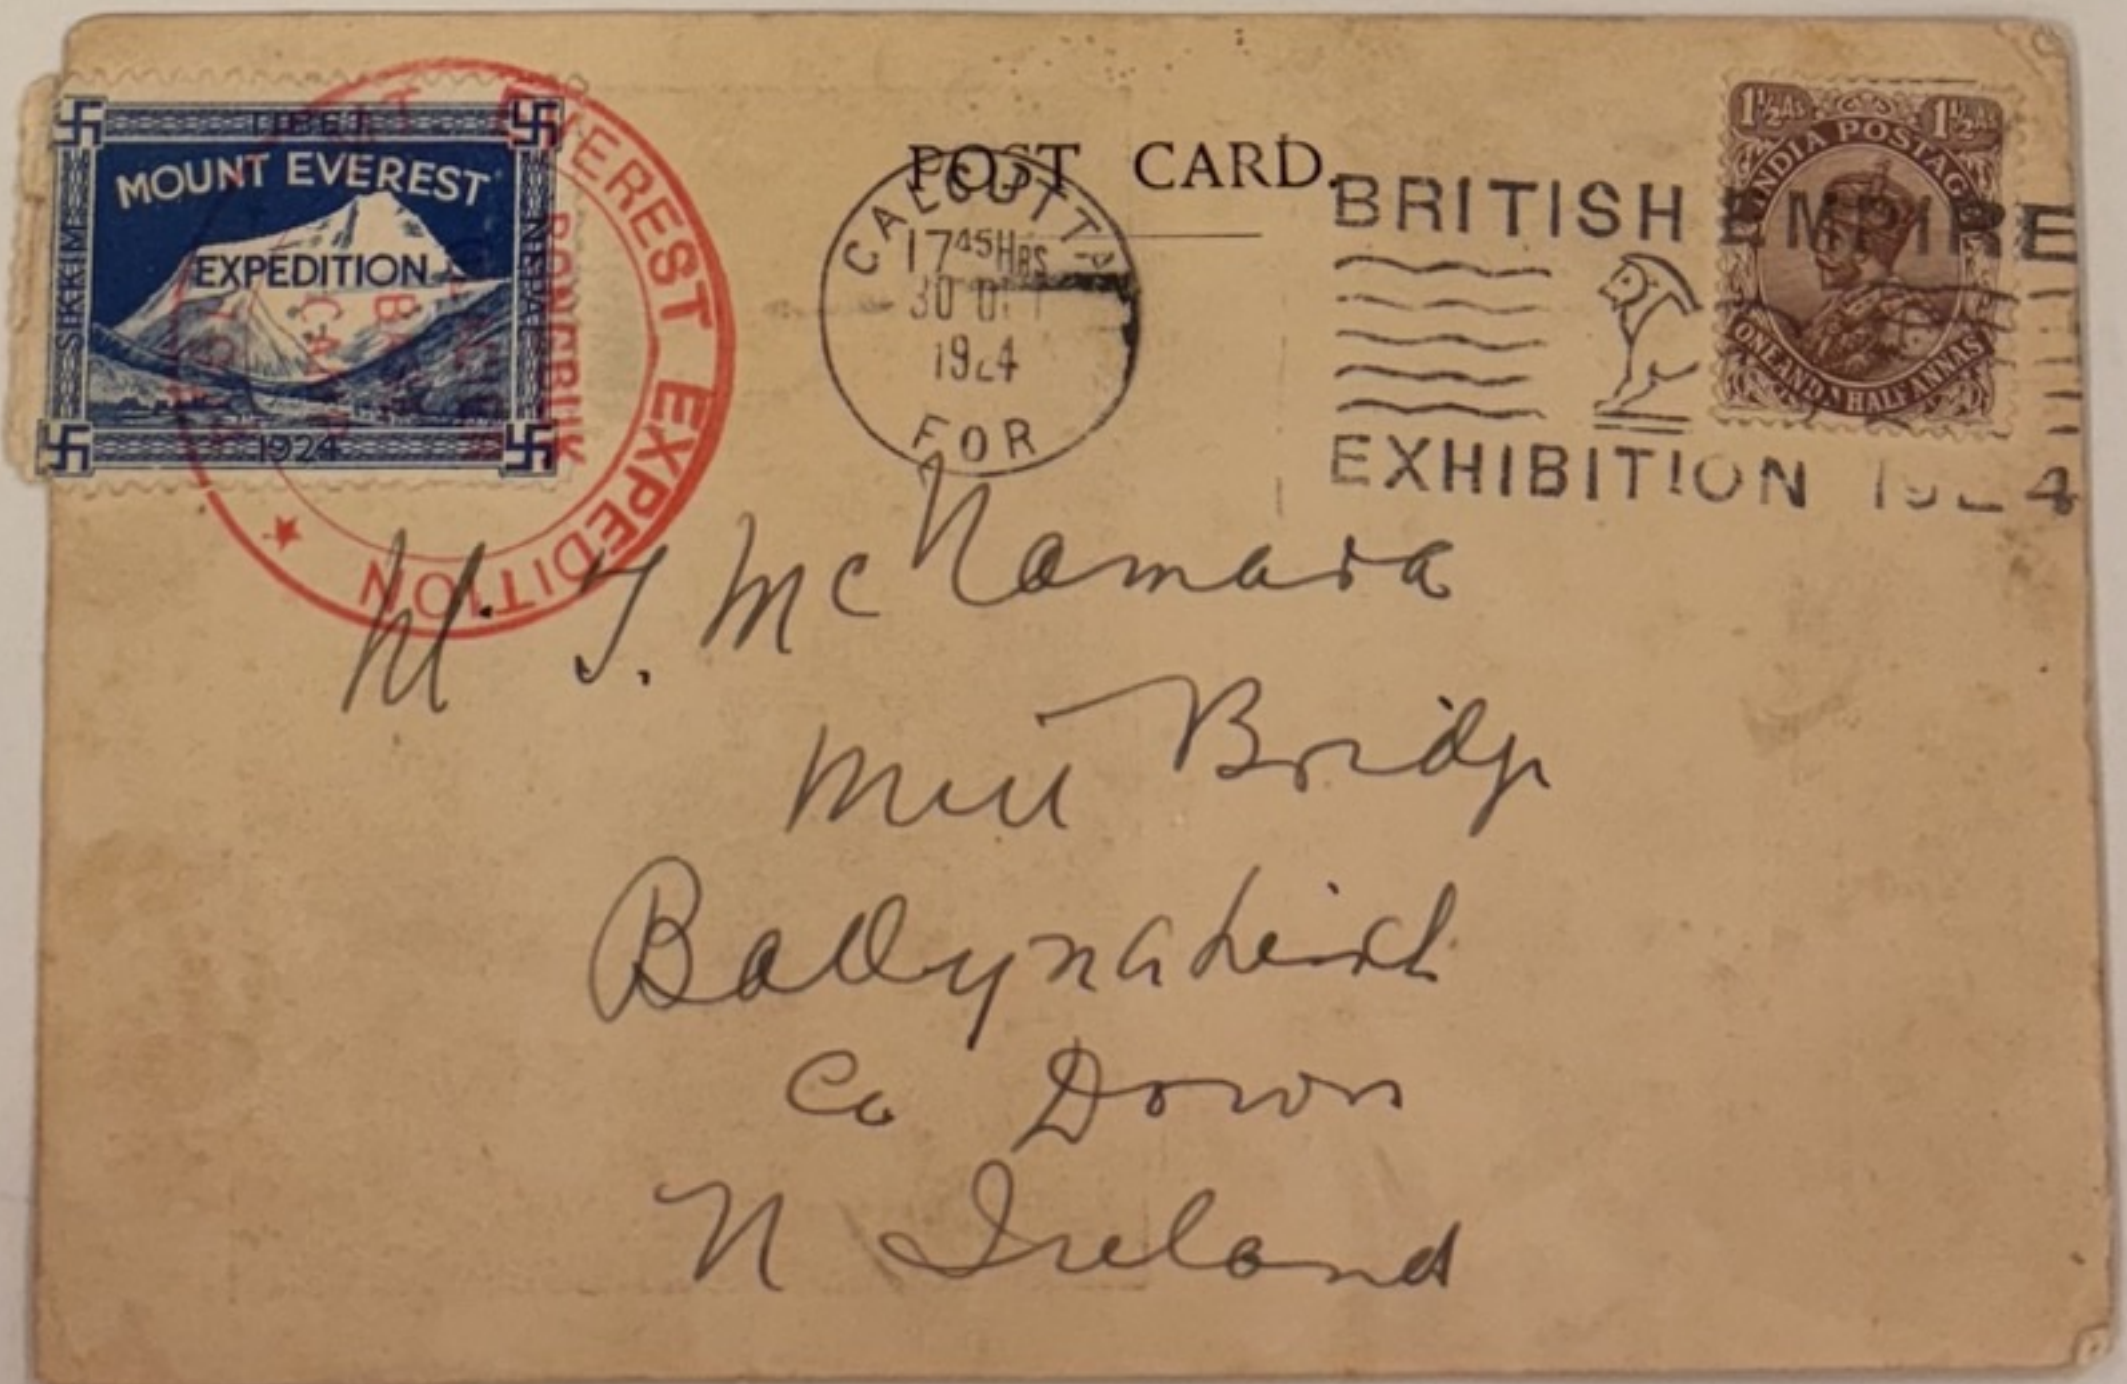 TIBET
MOUNT EVEREST
EXPEDITION
SIKKIM
NEPAL
1924
MOUNT EVEREST EXPEDITION
RONGBUK
POST CARD.
CALCUTTA
17 45 HRS
30 OCT
1924
FOR
BRITISH EMPIRE
EXHIBITION 1924
1½As 1½As
INDIA POSTAGE
ONE AND HALF ANNAS
Mr T. McNamara
Mill Bridge
Ballynahinch
Co Down
N Ireland